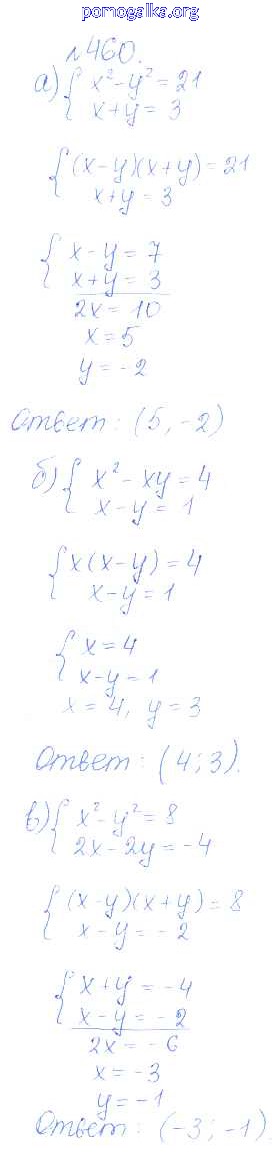 pomogalka.org
№460.
а) { x² - y² = 21
x + y = 3
{ (x - y)(x + y) = 21
x + y = 3
{ x - y = 7
x + y = 3
2x = 10
x = 5
y = -2
Ответ: (5, -2)
б) { x² - xy = 4
x - y = 1
{ x(x - y) = 4
x - y = 1
{ x = 4
x - y = 1
x = 4, y = 3
Ответ: (4; 3).
в) { x² - y² = 8
2x - 2y = -4
{ (x - y)(x + y) = 8
x - y = -2
{ x + y = -4
x - y = -2
2x = -6
x = -3
y = -1
Ответ: (-3; -1).